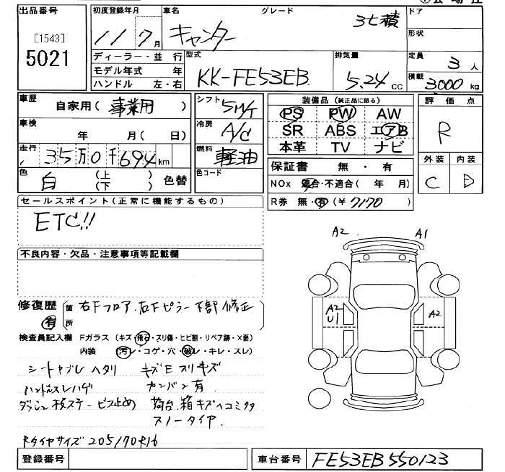 出品番号 初度登録年月 車名 グレード ドア
[1543] 11/7月 キャンター 3t積 形状
5021 ディーラー・並行 型式 排気量 定員 3人
モデル年式 年 KK-FE53EB 5.24cc 積載
ハンドル 左・右 3000kg
車歴 自家用(事業用) シフト 5MT 装備品(純正品に限る) 評価点
車検 年 月(日) 冷房 A/C PS PW AW R
走行 35万0千694km 燃料 軽油 SR ABS エアB 外装 内装
色 白(上下)色替 色コード 本革 TV ナビ C D
保証書 無・有
NOx 適合・不適合( 年 月)
R券 無・有(¥7170)
セールスポイント(正常に機能するもの)
ETC!!
A2 A1
不良内容・欠品・注意事項等記載欄
A2 U1 A2
修復歴 有 箇所 右Fフロア、右Fピラー下部修正
検査員記入欄 Fガラス(キズ・飛石・スリ傷・ヒビ割・リペア跡・X要)
内装(汚れ・コゲ・穴・破れ・キレ・スレ)
シートヤブレヘタリ キズEスリキズ
ハンドルスレハゲ カンバン有
ダッシュ枚ステービス止め 荷台、箱キズヘコミサク
スノータイヤ
Rタイヤサイズ205/70R16
登録番号 車台番号 FE53EB550123